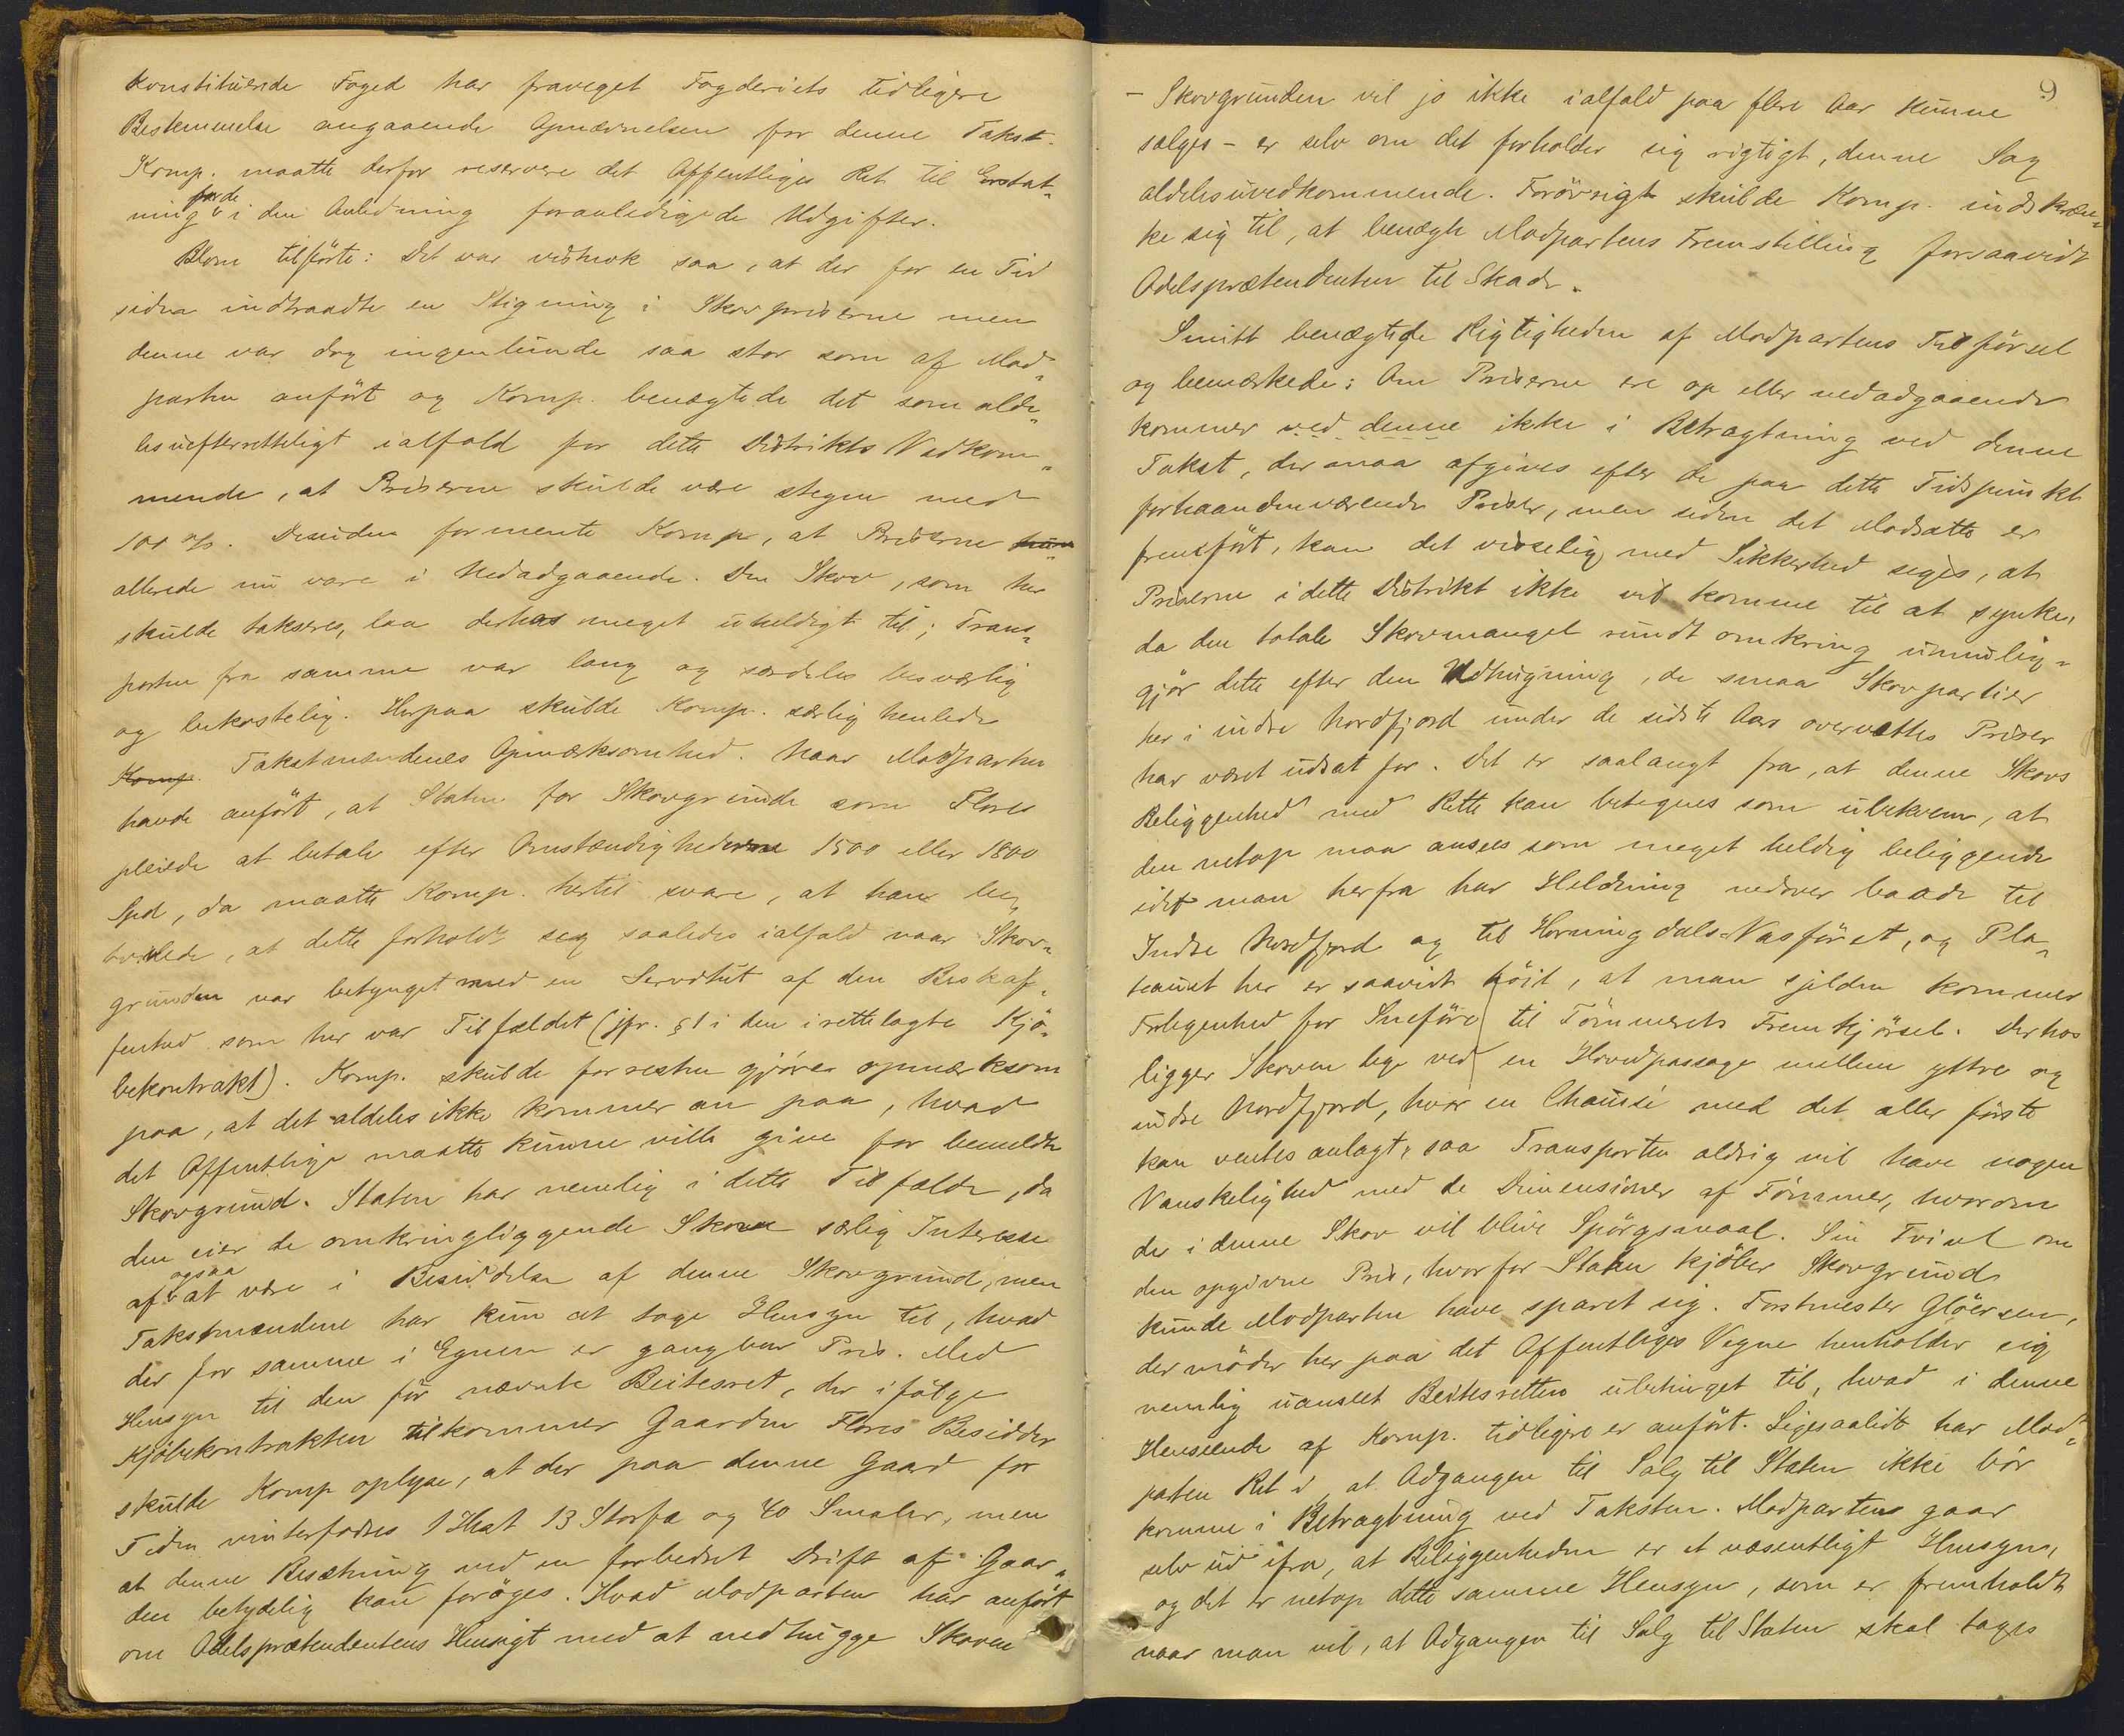 Konstituerede Foged har fraveget Fogderiets tidligere
Bestemmelse angaaende Opnævnelsen for denne Takst.
Komp. maatte derfor reservere det Offentliges Ret til Erstat-
ning for de i den Anledning foranledigede Udgifter.
Blom tilførte: Det var vistnok saa, at der for en Tid
siden indtraadte en Stigning i Skovpriserne men
denne var dog ingenlunde saa stor som af Mod-
parten anført og Komp. benægtede det som alde-
les uefterretteligt ialfald for dette Distrikts Vedkom-
mende, at Priserne skulde være stegen med
100 %. Desuden formente Komp, at Priserne
allerede nu vare i Nedadgaaende. Den Skov, som her
skulde takseres, laa derhos meget uheldigt til; Trans-
porten fra samme var lang og særdeles besværlig
og bekostelig. Herpaa skulde Komp. særlig henlede
Komp. Takstmændenes Opmærksomhed. Naar Modparten
havde anført, at Staten for Skovgrunde som Flores
pleiede at betale efter Omstændighederne 1500 eller 1800
Spd, da maatte Komp. hertil svare, at han be-
tvivlede, at dette forholdt seg saaledes ialfald naar Skov-
grunden var betynget med en Servitut af den Beskaf-
fenhed som her var Tilfældet (jfr. § 1 i den irettelagte Kjø-
bekontrakt). Komp. skulde forresten gjøre opmærksom
paa, at det aldeles ikke kommer an paa, hvad
det Offentlige maatte kunne ville give for bemeldte
Skovgrund. Staten har nemlig i dette Tilfælde, da
den eier de omkringliggende Skove særlig Interesse
af ogsaa at være i Besiddelse af denne Skovgrund, men
Takstmændene har kun at tage Hensyn til, hvad
der for samme i Egnen er gangbar Pris. Med
Hensyn til den før nævnte Beitesret, der ifølge
Kjøbekontrakten tilkommer Gaarden Flores Besidder
skulde Komp oplyse, at der paa denne Gaard for
Tiden vinterfødes 1 Hest 13 Storfæ og 40 Smaler, men
at denne Besætning ved en forbedret Drift af Gaar-
den betydelig kan forøges. Hvad Modparten har anført
om Odelsprætendentens Hensigt med at nedhugge Skoven
9
- Skovgrunden vil jo ikke ialfald paa flere Aar kunne
sælges - er selv om det forholder sig rigtigt, denne Sag
aldeles uvedkommende. Forøvrigt skulde Komp. indskræn-
ke sig til, at benægte Modpartens Fremstilling forsaavidt
Odelsprætendenten til Skade.
Smitt benægtede Rigtigheden af Modpartens Tilførsel
og bemærkede: Om Priserne ere op eller nedadgaaende
kommer ved denne ikke i Betragtning ved denne
Takst, der maa afgives efter de paa dette Tidspunkt
forhaandenværende Priser, men siden det Modsatte er
fremført, kan det visselig med Sikkerhed siges, at
Priserne i dette Distrikt ikke vil komme til at synke,
da den totale Skovmangel rundt omkring umulig-
gjør dette efter den Udhugning, de smaa Skovpartier
her i indre Nordfjord under de sidste Aars overvættes Priser
har været udsat for. Det er saalangt fra, at denne Skovs
Beliggenhed med Rette kan betegnes som ubekvem, at
den netop maa ansees som meget heldig beliggende
idet man herfra har Heldning nedover baade til
Indre Nordfjord og til Horningdals-Vasføret, og Pla-
teauet her er saavidt høit, at man sjelden kommer
Forlegenhed for Sneføre til Tømmerets Fremkjørsel. Derhos
ligger Skoven lige ved en Hovedpassage mellem yttre og
indre Nordfjord, hvor en Chaussé med det aller første
kan ventes anlagt, saa Transporten aldrig vil have nogen
Vanskelighed med de Dimensioner af Tømmer, hvorom
der i denne Skov vil blive Spørgsmaal. Sin Tvivl om
den opgivne Pris, hvorfor Staten kjøber Skovgrund
kunde Modparten have sparet sig. Forstmester Gløersen,
der møder her paa det Offentliges Vegne henholder sig
nemlig uanseet Beitesretten ubetinget til, hvad i denne
Henseende af Komp. tidligere er anført. Ligesaalidt har Mod-
parten Ret i, at Adgangen til Salg til Staten ikke bør
komme i Betragtning ved Taksten. Modpartens gaar
selv ud ifra, at Beliggenheden er et væsentligt Hensyn,
og det er netop dette samme Hensyn, som er fremholdt
naar man vil, at Adgangen til Salg til Staten skal tages